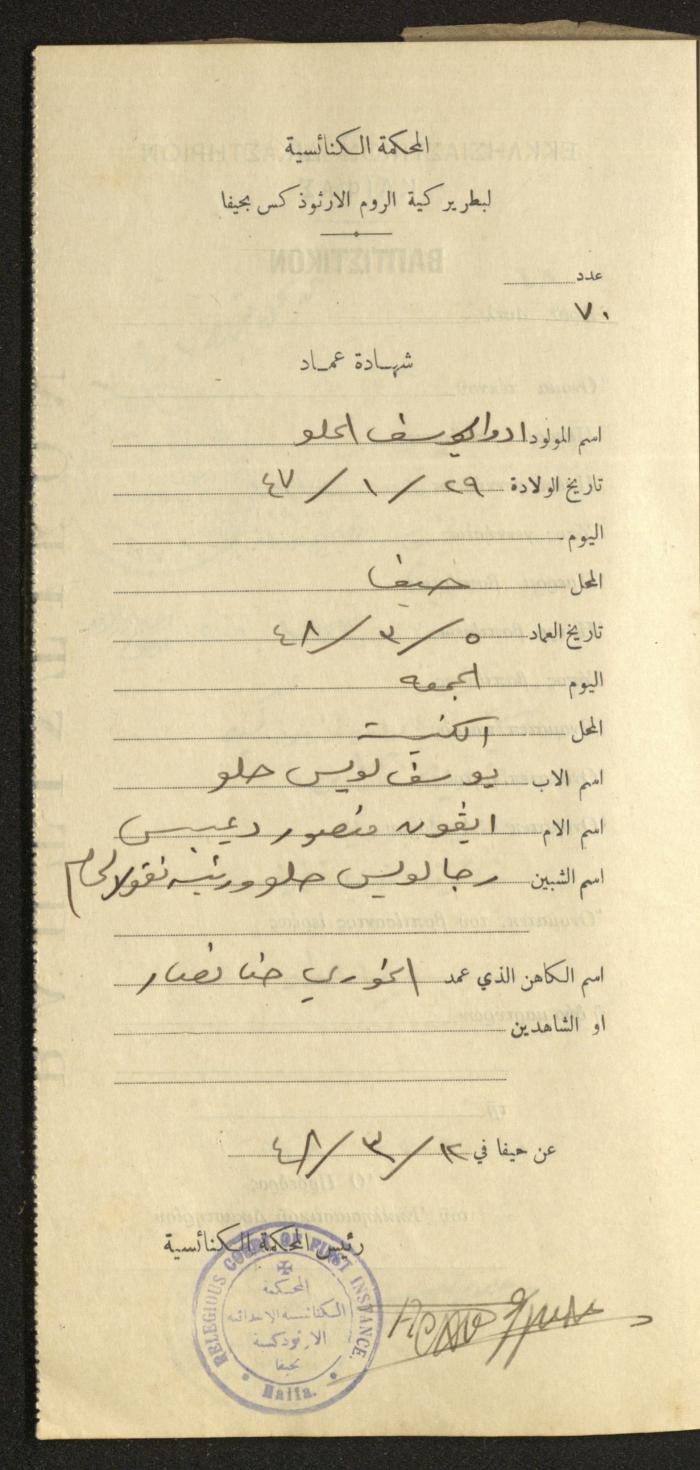 المحكمة الكنائسية
لبطريركية الروم الارثوذكس بحيفا
عدد
٧٠
شهادة عماد
اسم المولود ادوار يوسف الحلو
تاريخ الولادة ٢٩ / ١ / ٤٧
اليوم
المحل حيفا
تاريخ العماد ٥ / ٣ / ٤٨
اليوم الجمعه
المحل الكنيسة
اسم الاب يوسف لويس حلو
اسم الام ايڤون منصور دعيبس
اسم الشبين رجا لويس حلو و نقولا
اسم الكاهن الذي عمد الخوري حنا نصار
او الشاهدين
عن حيفا في ١٢ / ٣ / ٤٨
رئيس المحكمة الكنائسية
RELEGIOUS COURT OF FIRST INSTANCE.
المحكمة
الكنائسية الابتدائية
الارثوذكسية
بحيفا
Haifa.